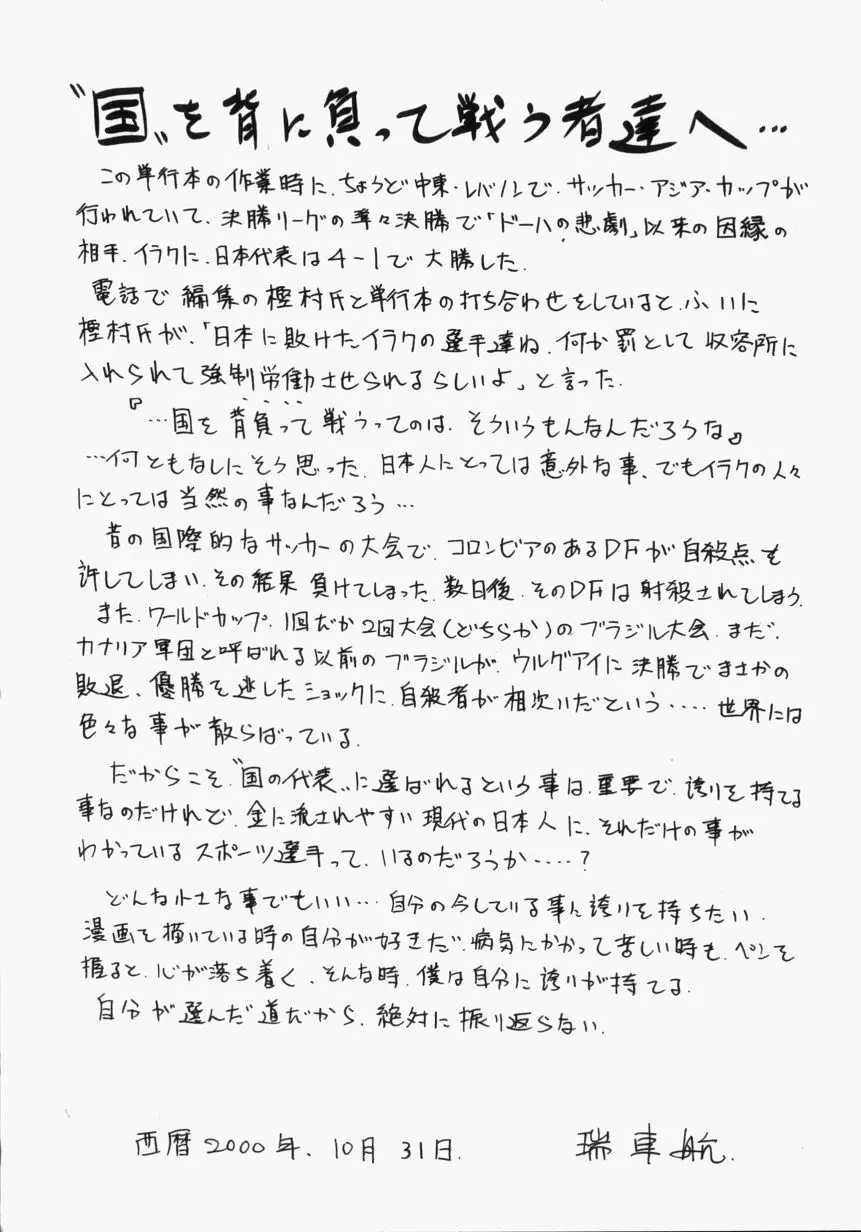 〝国〟を背に負って戦う者達へ…
この単行本の作業時に、ちょうど中東・レバノンで、サッカー・アジア・カップが
行われていて、決勝リーグの準々決勝で「ドーハの悲劇」以来の因縁の
相手、イラクに、日本代表は4-1で大勝した。
電話で編集の樫村氏と単行本の打ち合わせをしていると、ふいに
樫村氏が、「日本に敗けたイラクの選手達ね、何か罰として収容所に
入れられて強制労働させられるらしいよ」と言った。
『…国を背負って戦うってのは、そういうもんなんだろうな』
…何ともなしにそう思った。日本人にとっては意外な事、でもイラクの人々
にとっては当然の事なんだろう…
昔の国際的なサッカーの大会で、コロンビアのあるDFが自殺点を
許してしまい、その結果負けてしまった。数日後、そのDFは射殺されてしまう。
また、ワールドカップ、1回だか2回大会(どちらか)のブラジル大会、まだ、
カナリア軍団と呼ばれる以前のブラジルが、ウルグアイに決勝でまさかの
敗退、優勝を逃したショックに、自殺者が相次いだという……世界には
色々な事が散らばっている。
だからこそ、〝国の代表〟に選ばれるという事は、重要で、誇りを持てる
事なのだけれど、金に流されやすい現代の日本人に、それだけの事が
わかっているスポーツ選手って、いるのだろうか……?
どんな小さな事でもいい…自分の今している事に誇りを持ちたい。
漫画を描いている時の自分が好きだ。病気にかかって苦しい時も、ペンを
握ると、心が落ち着く、そんな時、僕は自分に誇りが持てる。
自分が選んだ道だから、絶対に振り返らない。
西暦2000年、10月31日。
瑞車航。